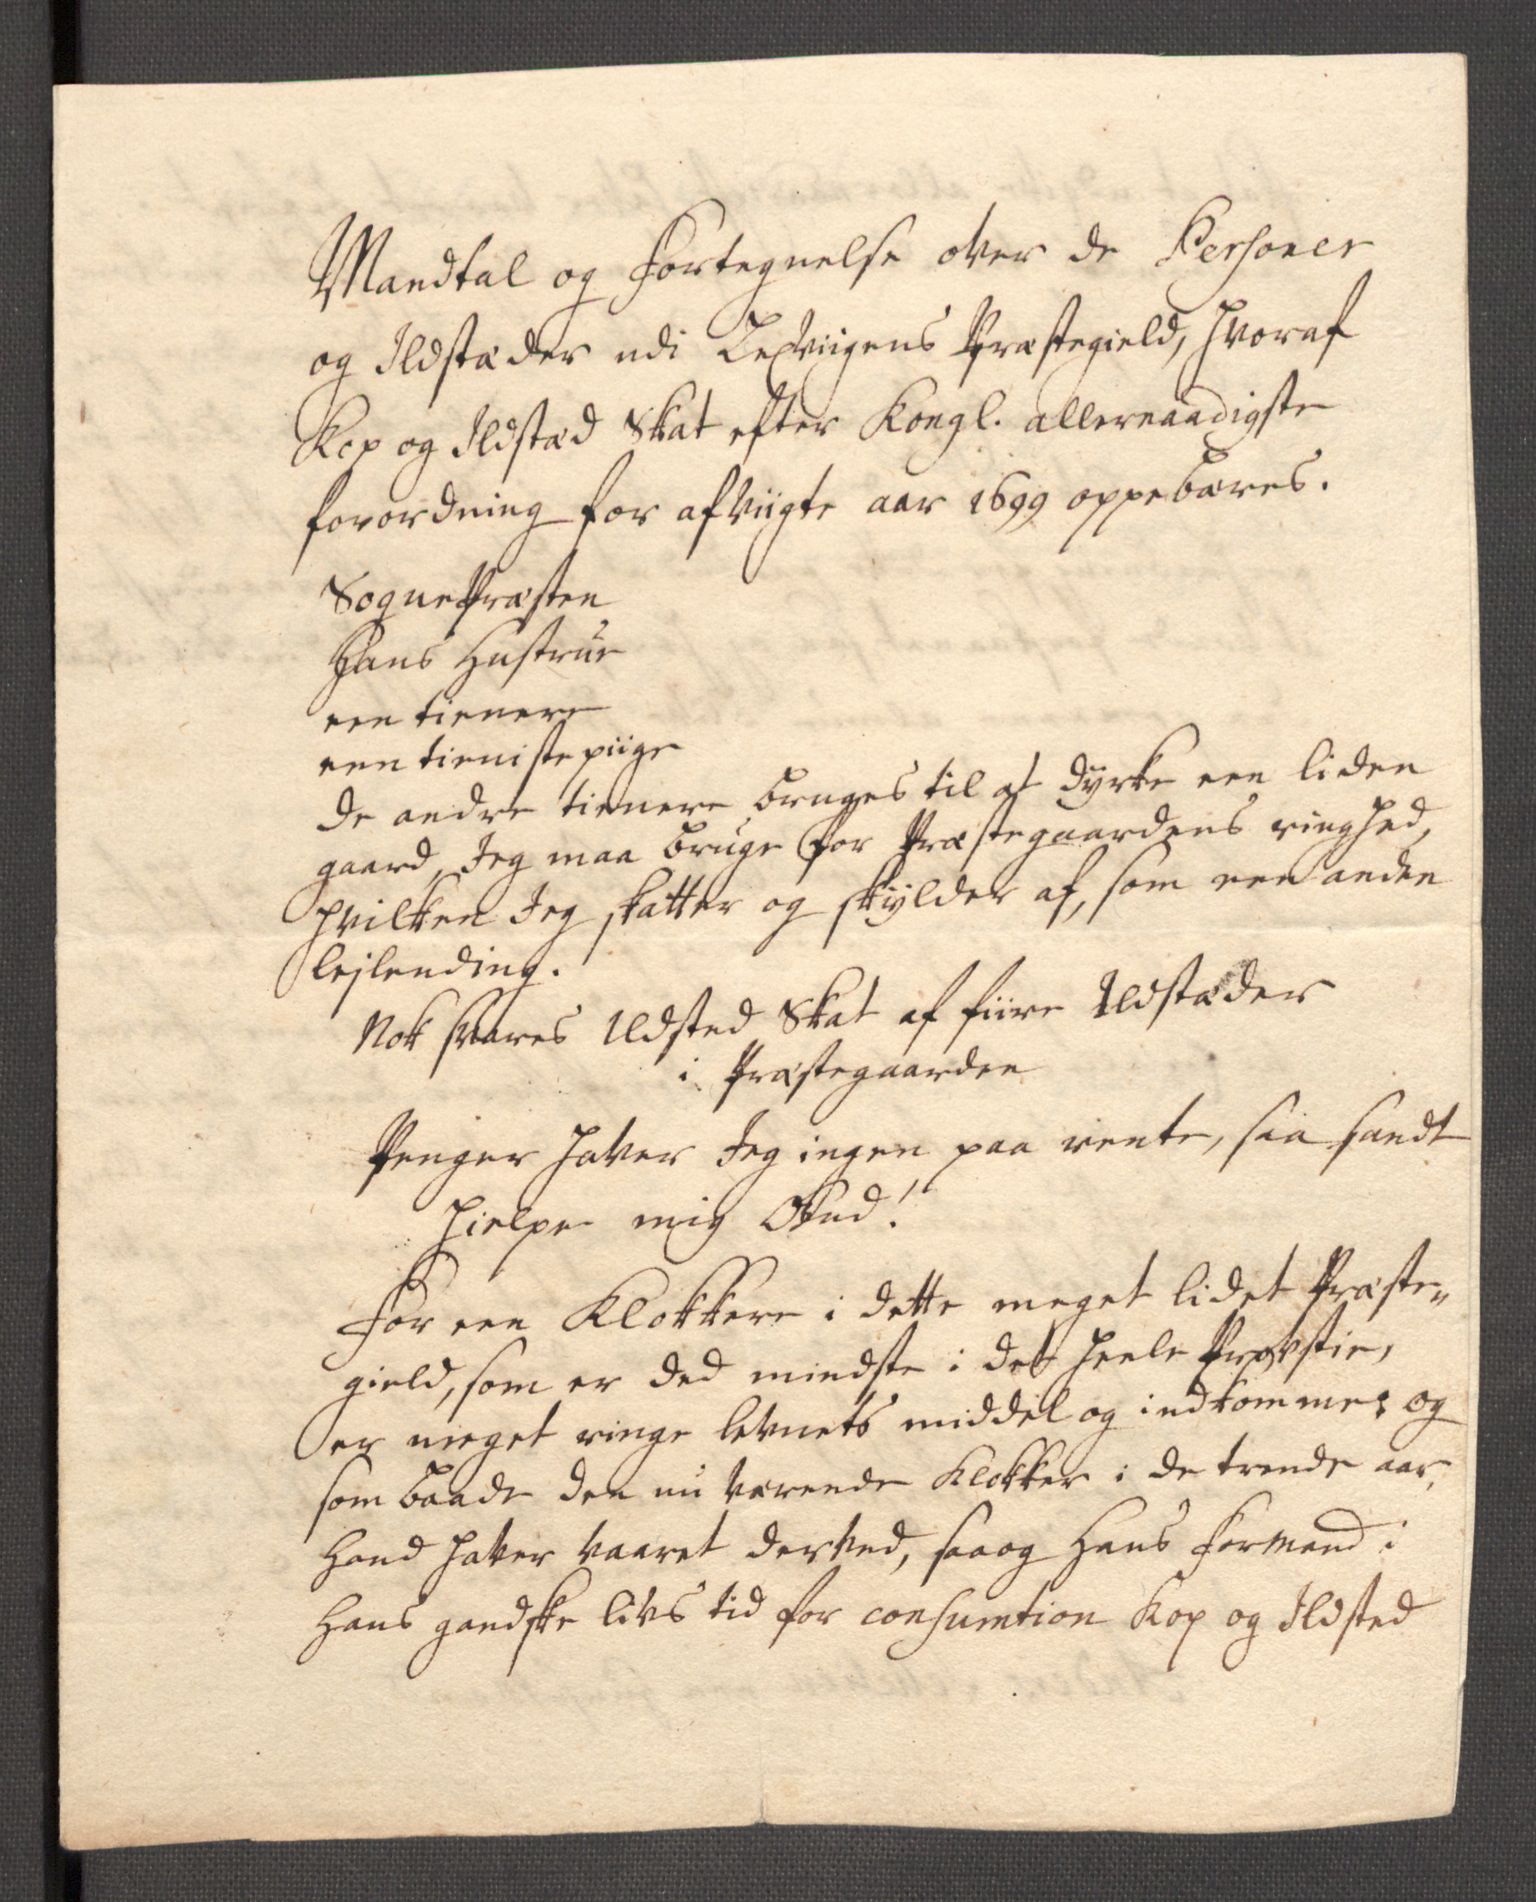 Mandtal og Fortegnelse over de Personer
og Ildstæder udi Lexviigens Præstegield, hvoraf
Kop og Ildstæd Skat efter Kongl. allernaadigste
forordning for afviigte aar 1699 oppebæres.
SognePræsten
Hans Hustrue
een tienere
een tieniste piige
de andre tienere bruges til at dÿrke een liden
gaard, Jeg maa bruge for Præstegaardens ringhed,
hvilken Jeg skatter og skÿlder af, som een anden
lejlending.
Nok svares Ildsted Skat af fiire Ildstæder
i Præstegaarden
Penger haver Jeg ingen paa rente, saa sandt
hielpe mig Gud!
For een Klokkere i dette meget lidet Præste-
gield, som er ded mindste i det heele Provstie,
er meget ringe levnets middel og indkomme; og
som baade den nu værende Klokker i de trende aar,
Hand haver vaaret derved, saa og Hans Formand i
Hans gandske livs tid for consumtion Kop og Ildsted